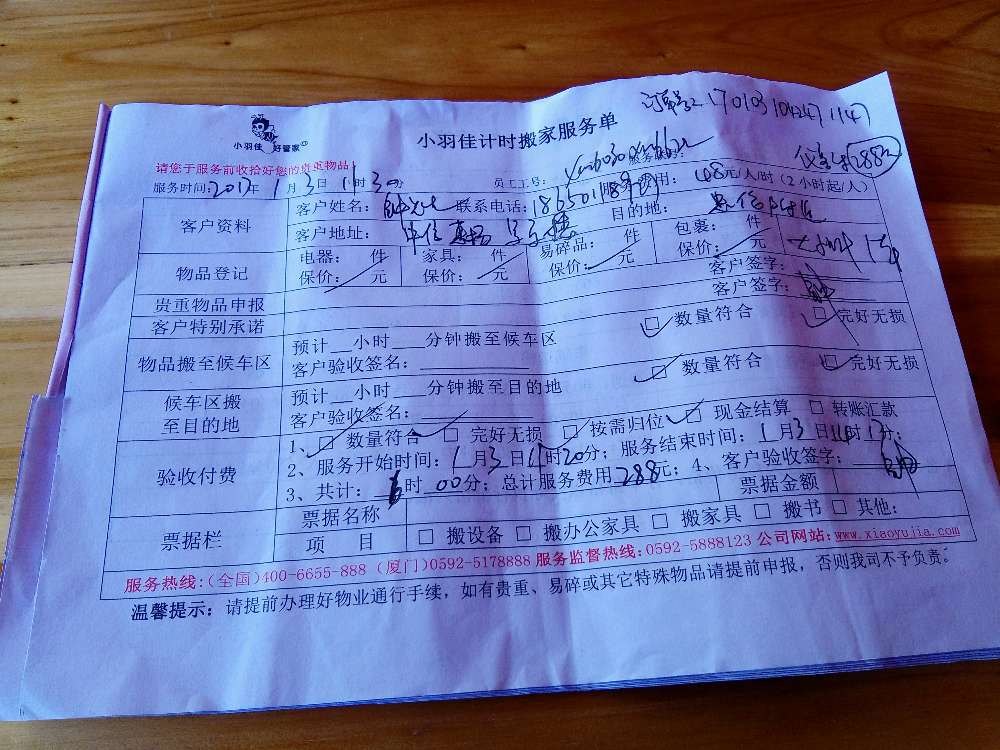 小羽佳 好管家
小羽佳计时搬家服务单
请您于服务前收拾好您的贵重物品
服务时间:2017年1月3日11时30分 员工工号: 服务费用:108元/人/时(2小时起/人)
客户资料
客户姓名: 联系电话: 目的地:
客户地址:
物品登记
电器: 件 家具: 件 易碎品: 件 包裹: 件
保价: 元 保价: 元 保价: 元 保价: 元
贵重物品申报 客户签字:
客户特别承诺 客户签字:
物品搬至候车区
预计 小时 分钟搬至候车区 □ 数量符合 □ 完好无损
客户验收签名:
候车区搬至目的地
预计 小时 分钟搬至目的地 □ 数量符合 □ 完好无损
客户验收签名:
验收付费
1、□ 数量符合 □ 完好无损 □ 按需归位 □ 现金结算 □ 转账汇款
2、服务开始时间:1月3日11时20分;服务结束时间:1月3日 时 分;
3、共计: 时00分;总计服务费用288元;4、客户验收签字:
票据栏
票据名称 票据金额
项 目 □ 搬设备 □ 搬办公家具 □ 搬家具 □ 搬书 □ 其他:
服务热线:(全国)400-6655-888 (厦门)0592-5178888 服务监督热线:0592-5888123 公司网站:www.xiaoyujia.com
温馨提示:请提前办理好物业通行手续,如有贵重、易碎或其它特殊物品请提前申报,否则我司不予负责。